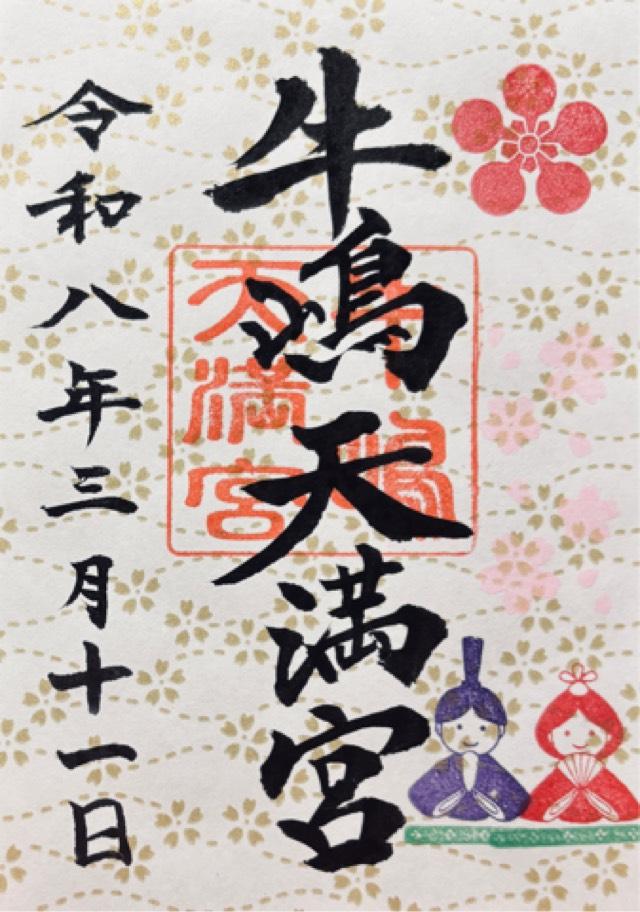 牛嶋天満宮
牛嶋
天満宮
令和八年三月十一日